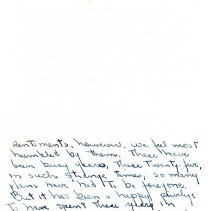 sentiments, however, we feel most
humbled by them. These have
been busy years, these twenty-five,
in such strange times, so many
plans have had to be foregone.
But it has been a happy
to have spent these years in